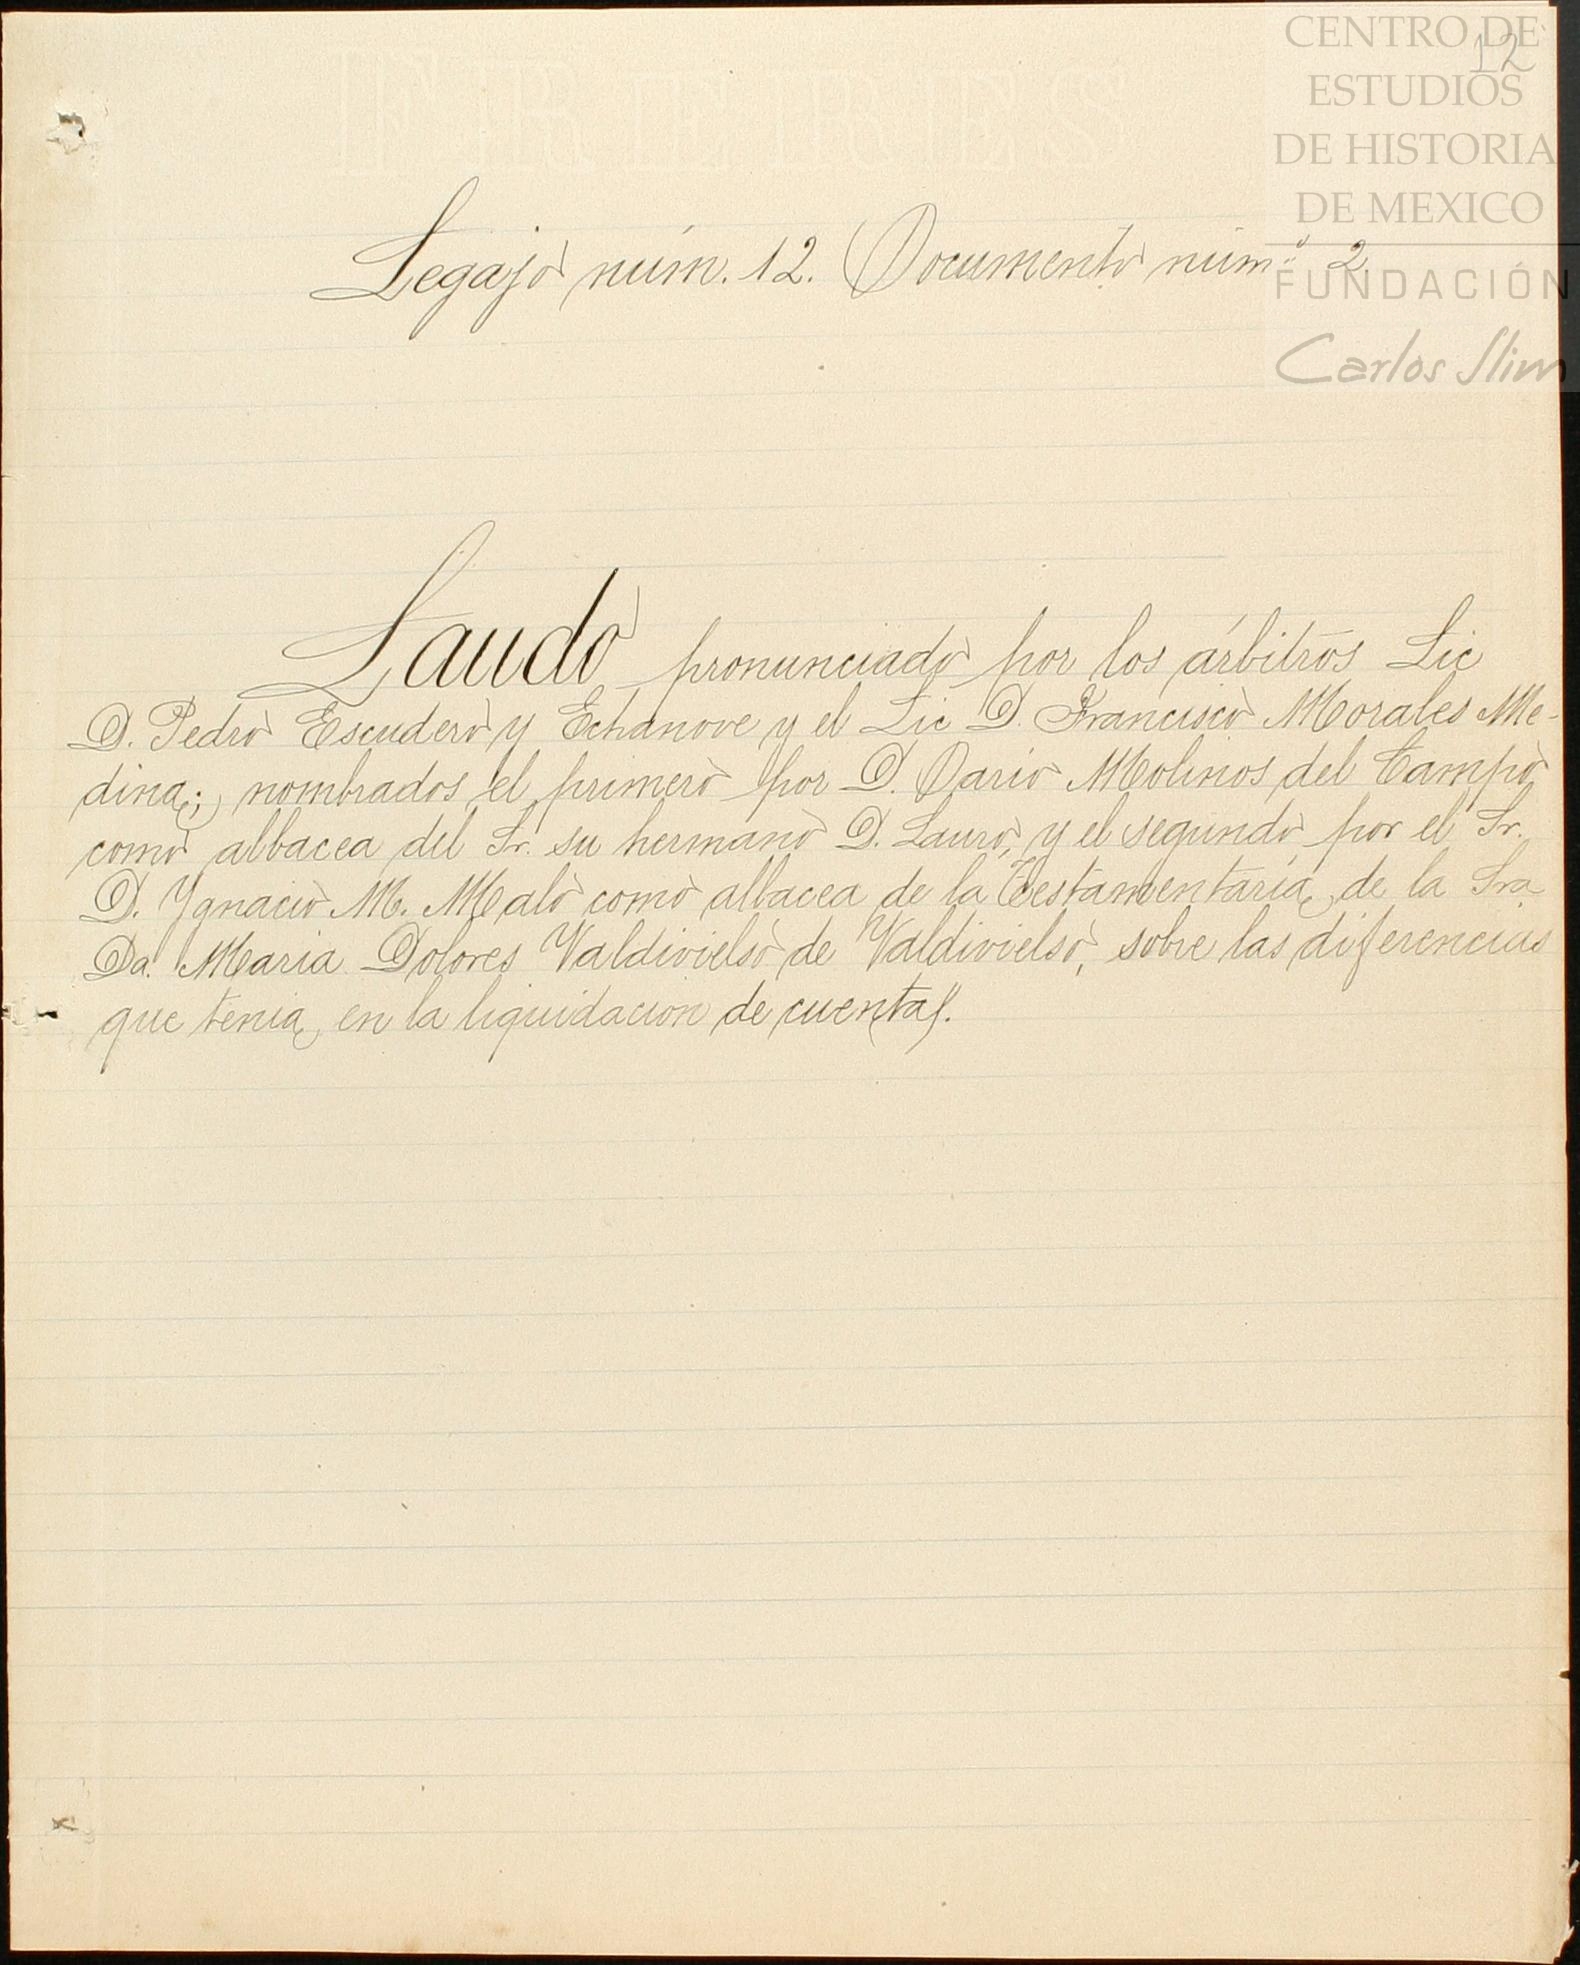 CENTRO DE
12
ESTUDIOS
DE HISTORIA
DE MEXICO
FUNDACIÓN
Carlos Slim
Legajo núm. 12. Documento núm.º 2
Laudo pronunciado por los árbitros Lic
D. Pedro Escudero y Echanove y el Lic D. Francisco Morales Me-
dina; nombrados el primero por D. Dario Molinos del Campo
como albacea del Sr. su hermano D. Lauro, y el segundo por el Sr.
D. Ygnacio M. Malo como albacea de la Testamentaria de la Sra
Da. Maria Dolores Valdivielso de Valdivielso, sobre las diferencias
que tenia en la liquidacion de cuentas.